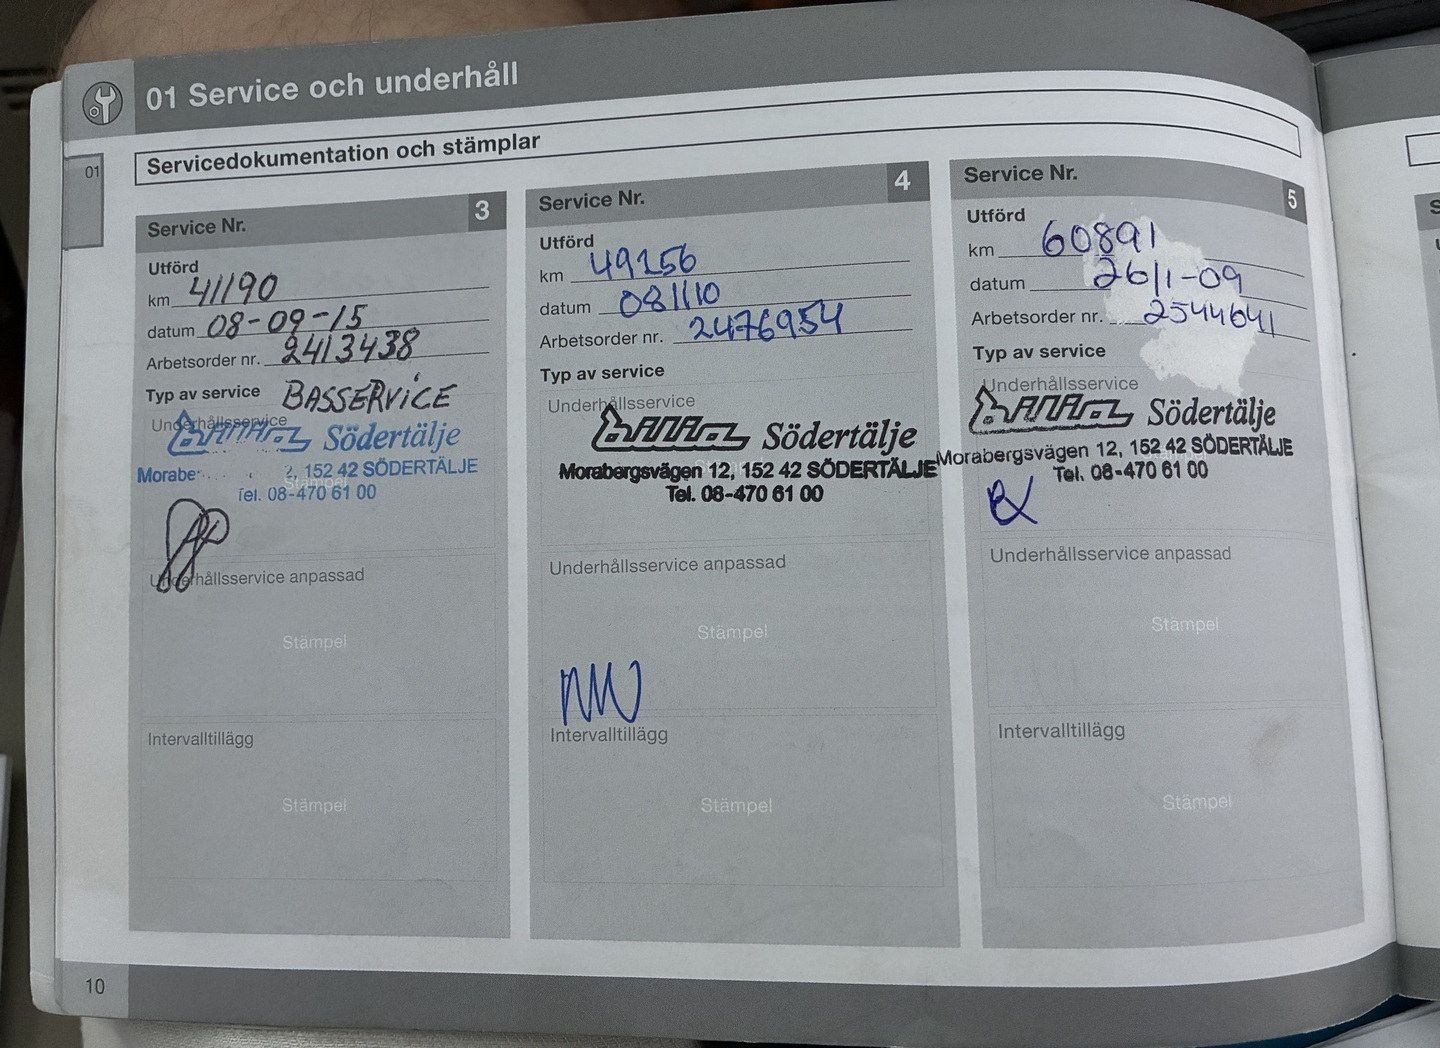 01 Service och underhåll
01
Servicedokumentation och stämplar
Service Nr. 3
Utförd
km 41190
datum 08-09-15
Arbetsorder nr. 2413438
Typ av service BASSERVICE
Underhållsservice
Bilia Södertälje
Morabe 2, 152 42 SÖDERTÄLJE
Stämpel
Tel. 08-470 61 00
Underhållsservice anpassad
Stämpel
Intervalltillägg
Stämpel
Service Nr. 4
Utförd
km 49256
datum 081110
Arbetsorder nr. 2476954
Typ av service
Underhållsservice
Bilia Södertälje
Morabergsvägen 12, 152 42 SÖDERTÄLJE
Tel. 08-470 61 00
Underhållsservice anpassad
Stämpel
Intervalltillägg
Stämpel
Service Nr. 5
Utförd
km 60891
datum 26/1-09
Arbetsorder nr. 2544641
Typ av service
Underhållsservice
Bilia Södertälje
Morabergsvägen 12, 152 42 SÖDERTÄLJE
Tel. 08-470 61 00
Underhållsservice anpassad
Stämpel
Intervalltillägg
Stämpel
10